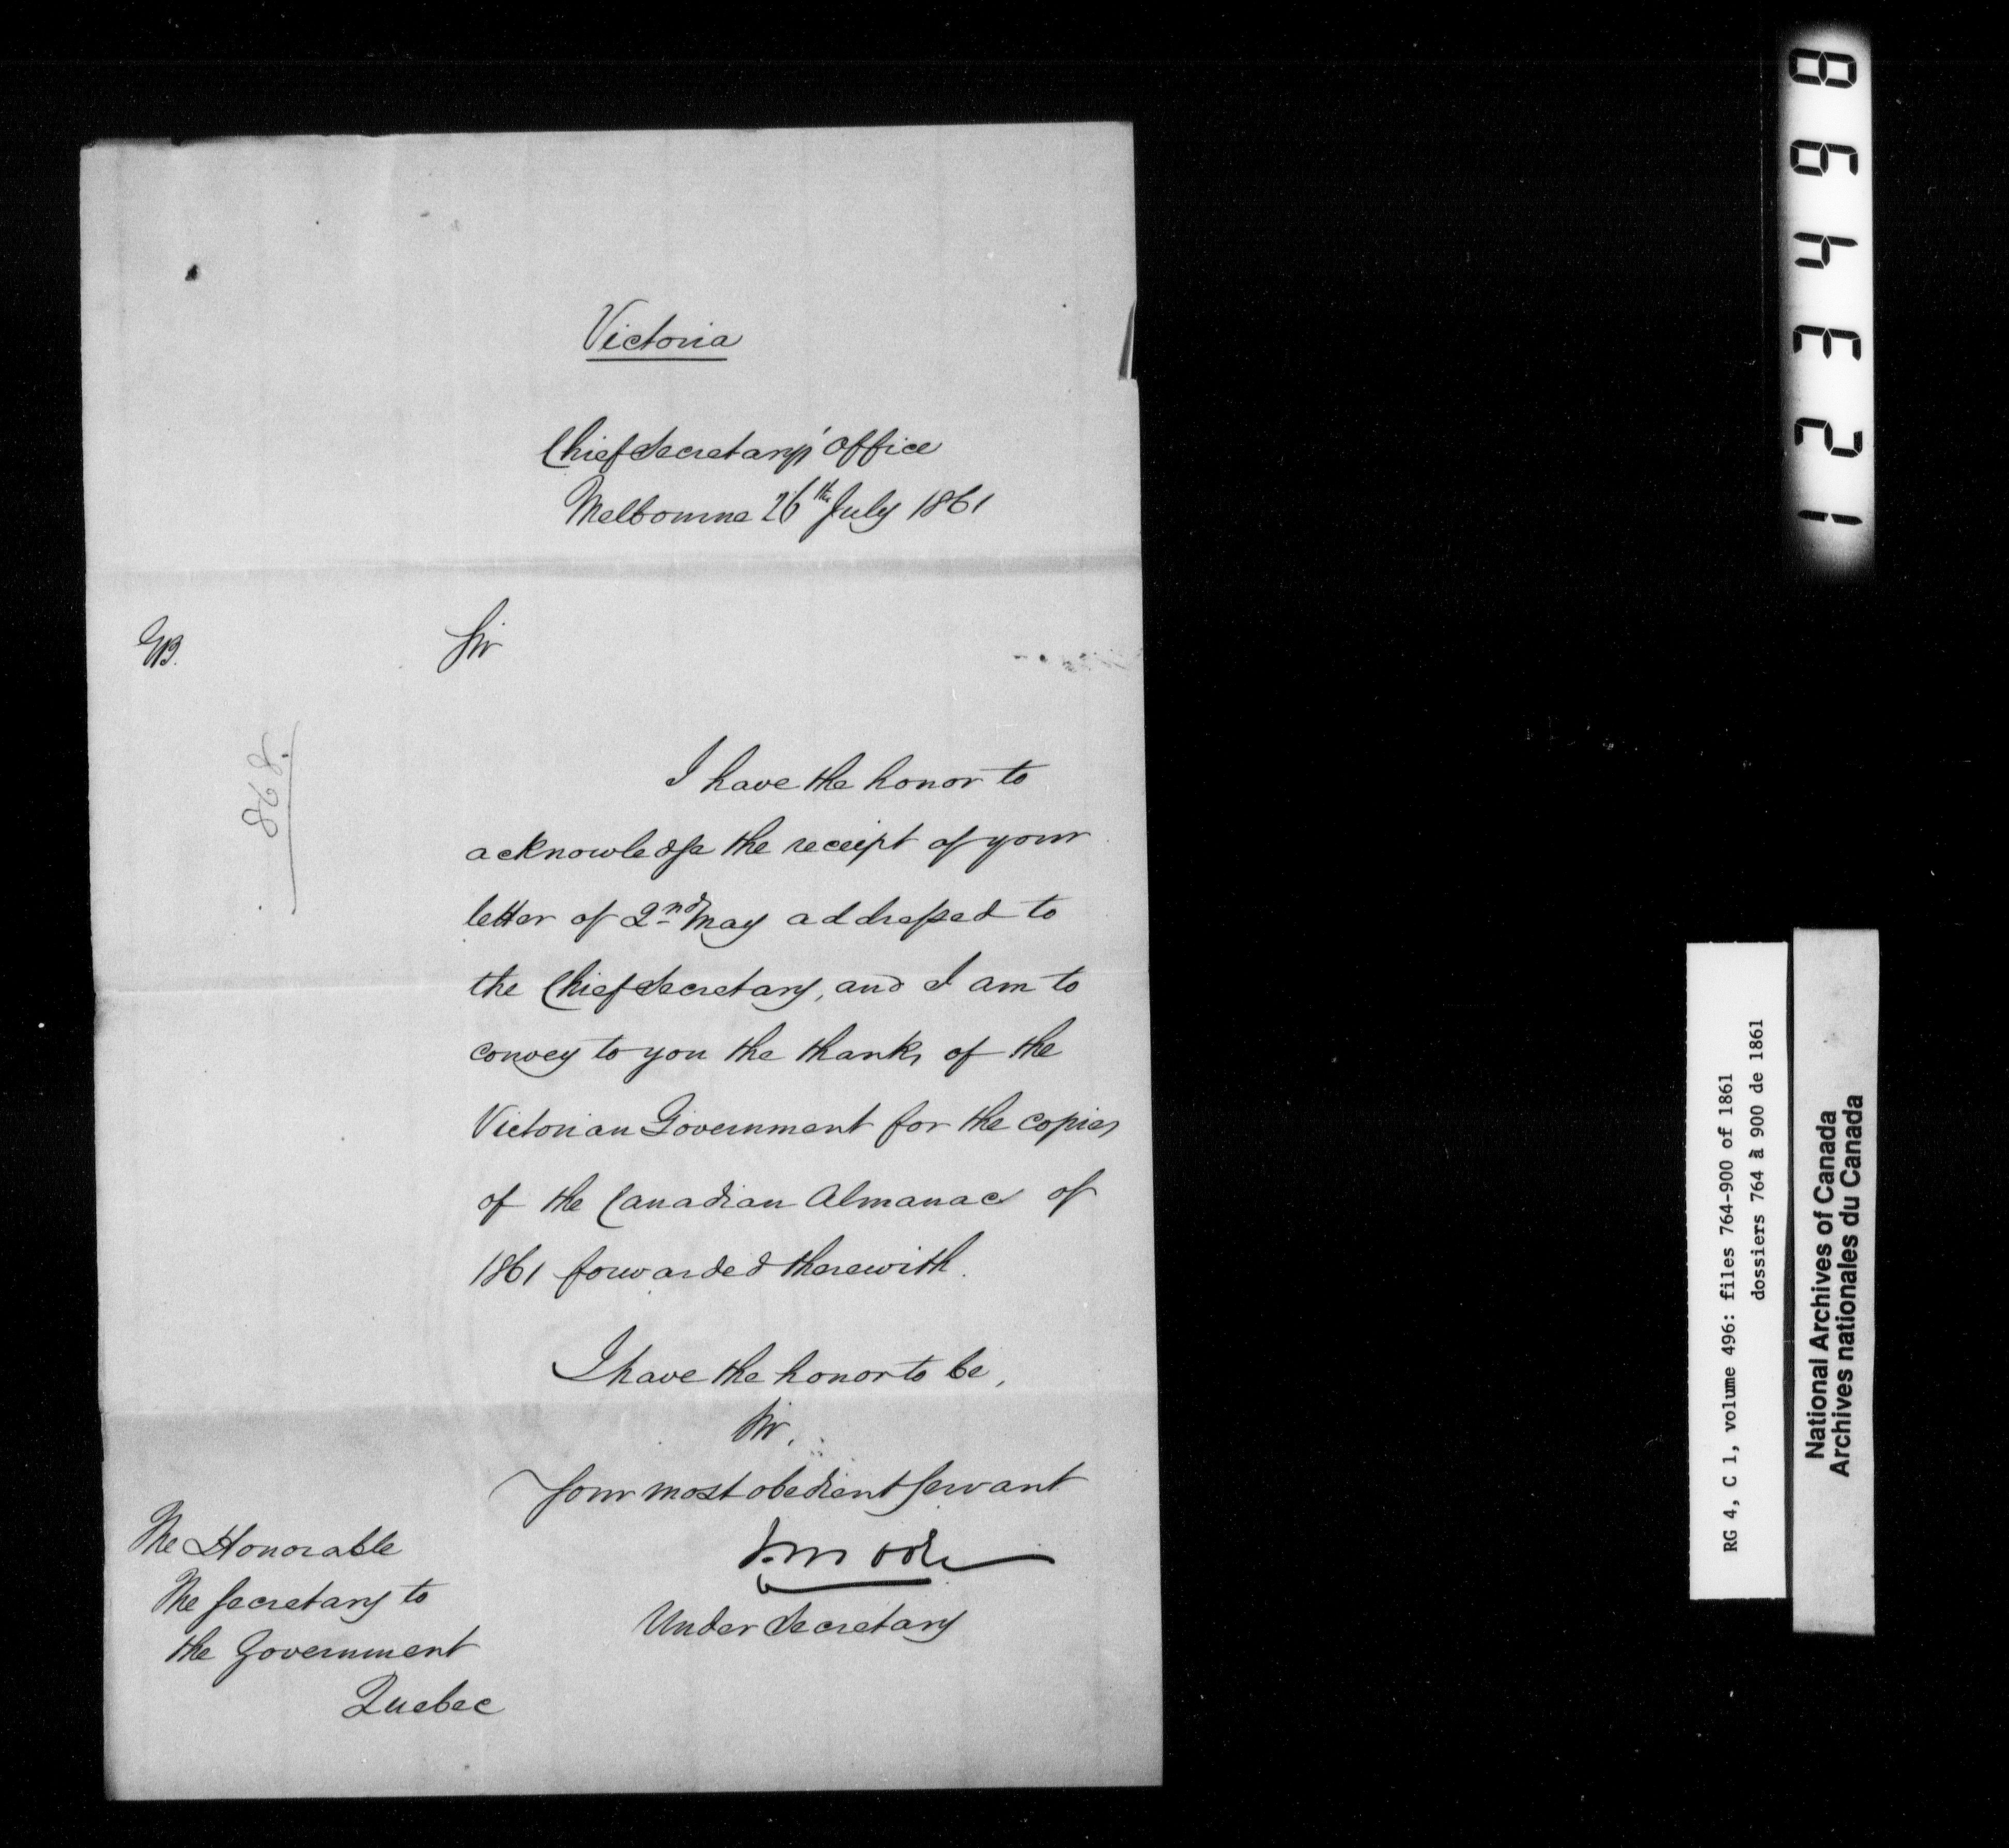 Victoria
Chief Secretary's Office
Melbourne 26th July 1861
Sir
868.
I have the honor to
acknowledge the receipt of your
letter of 2nd May addressed to
the Chief Secretary, and I am to
convey to you the thanks of the
Victorian Government for the copies
of the Canadian Almanac of
1861 forwarded therewith.
I have the honor to be,
Sir,
Your most obedient Servant
J. Moore
Under Secretary
The Honorable
The Secretary to
the Government
Quebec
123498
RG 4, C 1, volume 496: files 764-900 of 1861
dossiers 764 à 900 de 1861
National Archives of Canada
Archives nationales du Canada